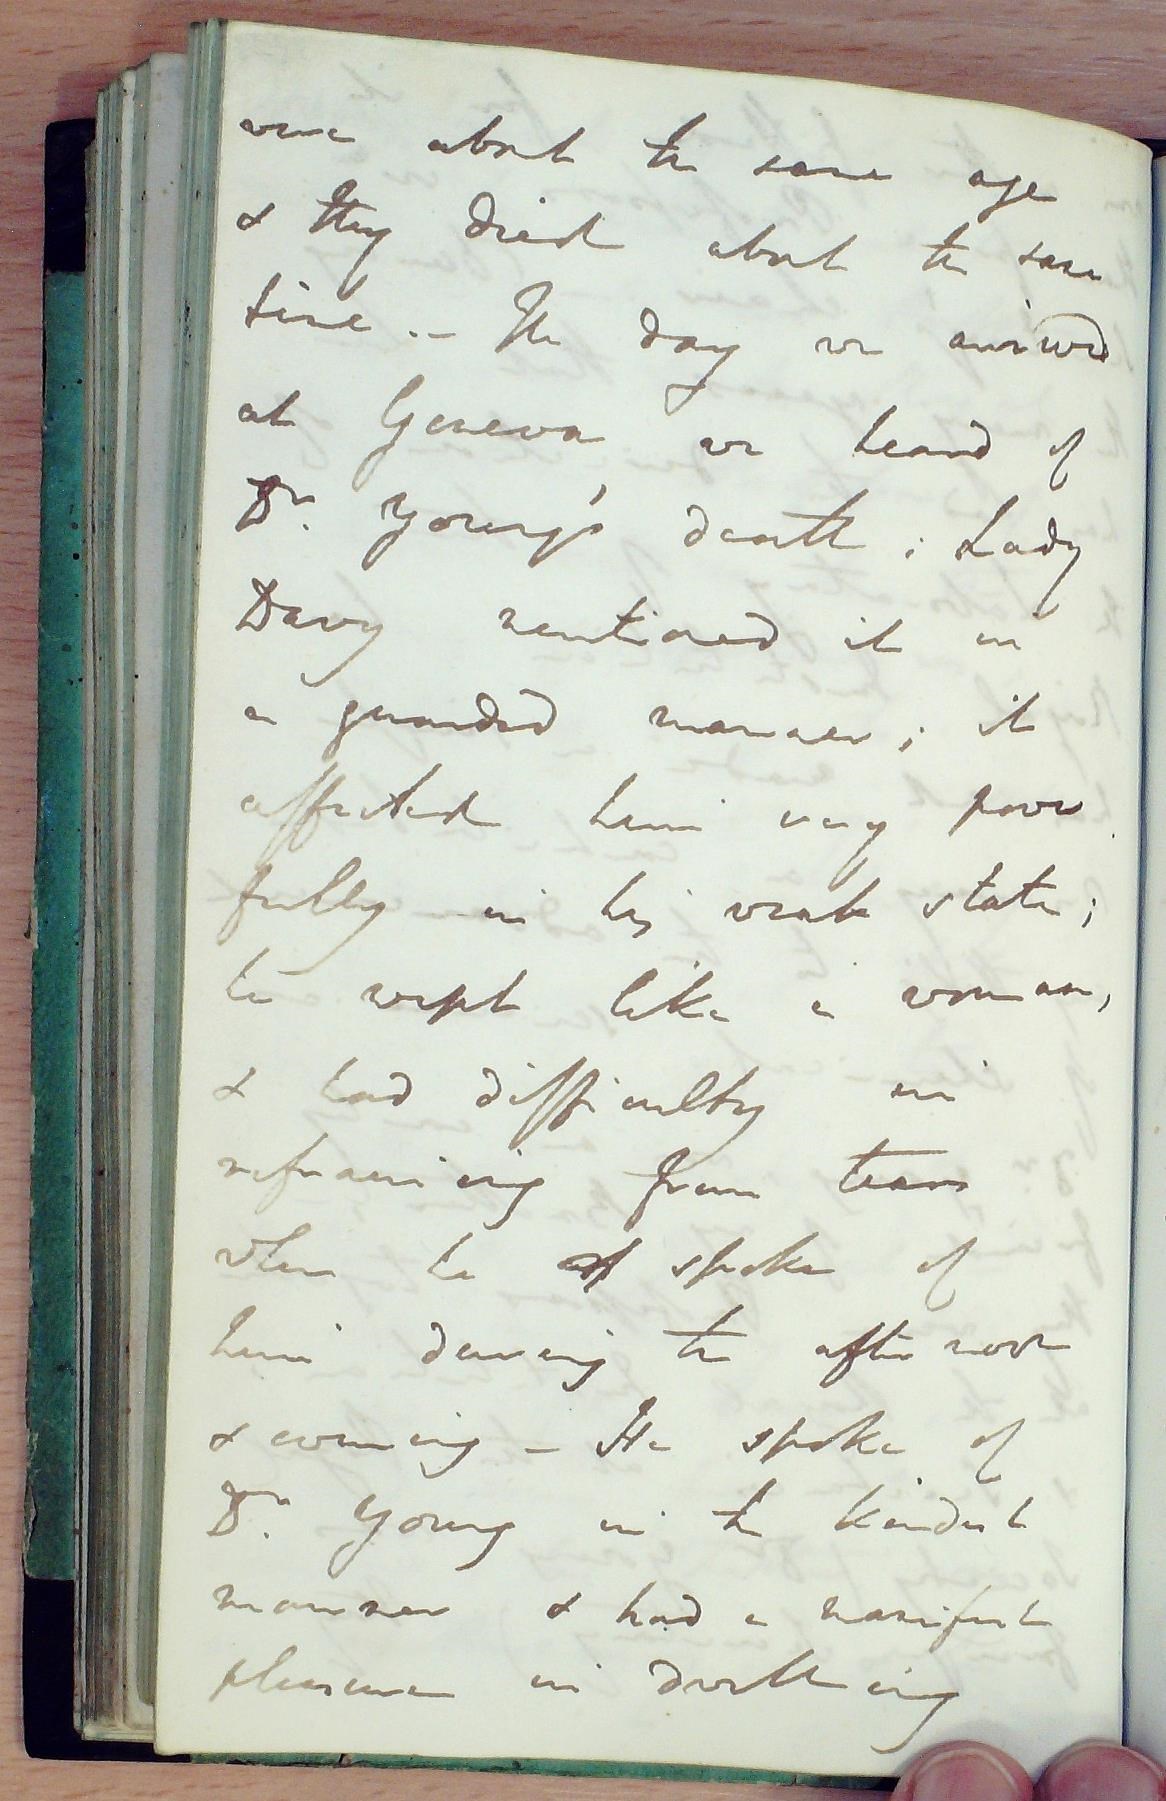 were about the same age
& they died about the same
time. – The day we arrived
at Geneva we heard of
Dr. Young's death; Lady
Davy mentioned it in
a guarded manner; it
affected him very power
fully in his weak state;
he wept like a woman,
& had difficulty in
refraining from tears
when he spoke of
him during the afternoon
& evening – He spoke of
Dr. Young in the kindest
manner & had a manifest
pleasure in dwelling